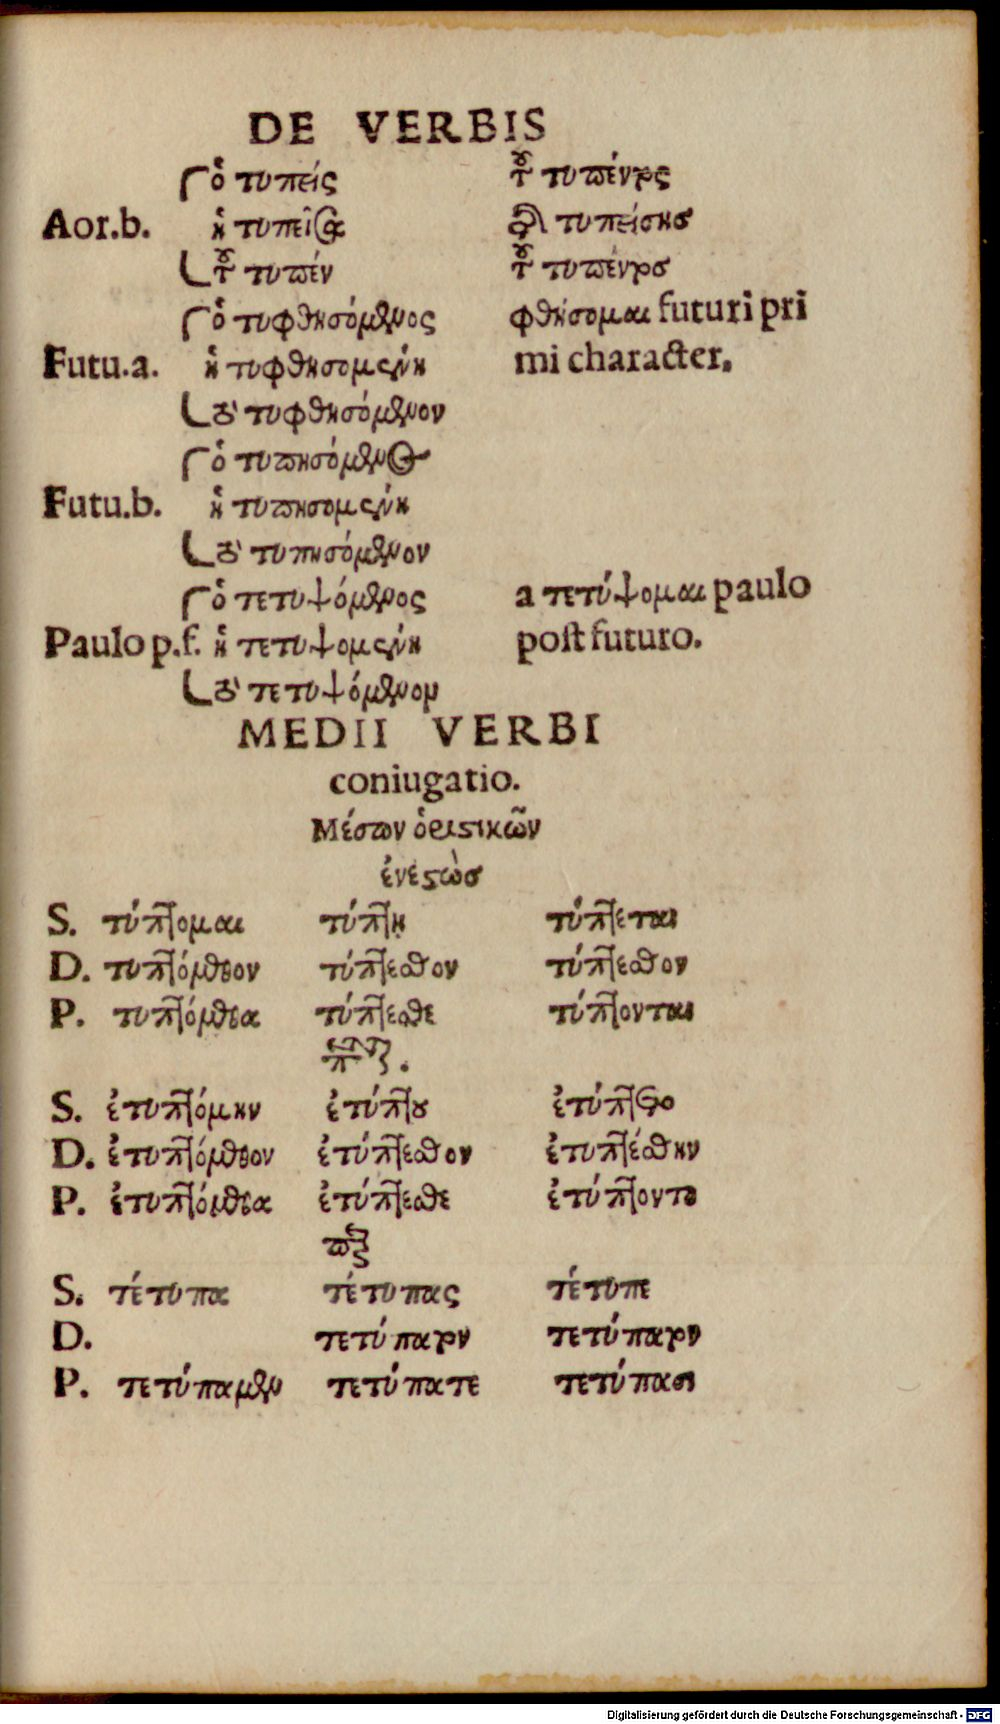 DE VERBIS
ὁ τυπείς τοῦ τυπέντος
Aor.b. ἡ τυπεῖσα τῆς τυπείσησ
τοῦ τυπέν τοῦ τυπέντοσ
ὁ τυφθησόμενος φθήσομαι futuri pri
Futu.a. ἡ τυφθησομένη mi character.
τὸ τυφθησόμενον
ὁ τυπησόμενος
Futu.b. ἡ τυπησομένη
τὸ τυπησόμενον
ὁ τετυψόμενος a τετύψομαι paulo
Paulo p.f. ἡ τετυψομένη post futuro.
τὸ τετυψόμενον
MEDII VERBI
coniugatio.
Μέσων ὁριστικῶν
ἐνεστὼσ
S. τύπτομαι τύπτῃ τύπτεται
D. τυπτόμεθον τύπτεσθον τύπτεσθον
P. τυπτόμεθα τύπτεσθε τύπτονται
S. ἐτυπτόμην ἐτύπτου ἐτύπτετο
D. ἐτυπτόμεθον ἐτύπτεσθον ἐτυπτέσθην
P. ἐτυπτόμεθα ἐτύπτεσθε ἐτύπτοντο
S. τέτυπα τέτυπας τέτυπε
D. τετύπατον τετύπατον
P. τετύπαμεν τετύπατε τετύπασι
Digitalisierung gefördert durch die Deutsche Forschungsgemeinschaft - DFG